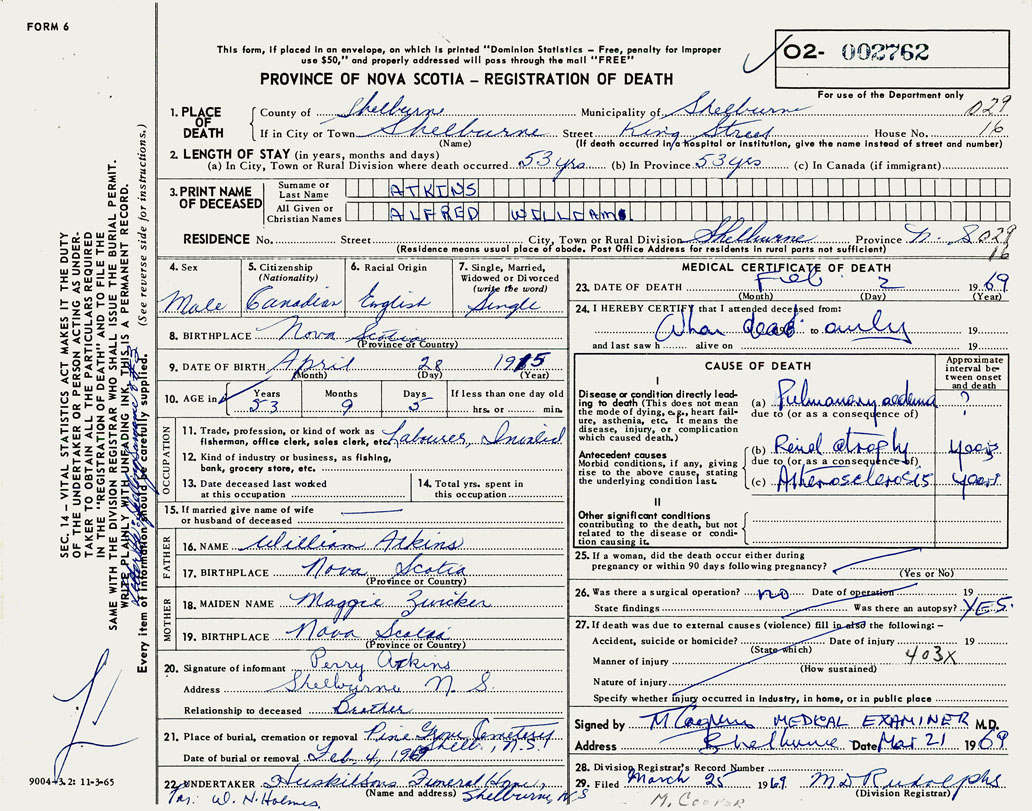 FORM 6
This form, if placed in an envelope, on which is printed "Dominion Statistics – Free, penalty for improper
use $50," and properly addressed will pass through the mail "FREE"
O2- 002762
PROVINCE OF NOVA SCOTIA – REGISTRATION OF DEATH
For use of the Department only
029
16
1. PLACE OF DEATH
County of Shelburne Municipality of Shelburne
If in City or Town Shelburne Street King Street House No.
(Name) (If death occurred in a hospital or institution, give the name instead of street and number)
2. LENGTH OF STAY (in years, months and days)
(a) In City, Town or Rural Division where death occurred 53 yrs (b) In Province 53 yrs (c) In Canada (if immigrant)
3. PRINT NAME OF DECEASED
Surname or Last Name ATKINS
All Given or Christian Names ALFRED WILLIAM
RESIDENCE No. Street City, Town or Rural Division Shelburne Province N. S 029
16
(Residence means usual place of abode. Post Office Address for residents in rural parts not sufficient)
4. Sex Male
5. Citizenship (Nationality) Canadian
6. Racial Origin English
7. Single, Married, Widowed or Divorced (write the word) Single
8. BIRTHPLACE Nova Scotia
(Province or Country)
9. DATE OF BIRTH April 28 1915
(Month) (Day) (Year)
10. AGE in Years 53 Months 9 Days 5 If less than one day old hrs. or min.
OCCUPATION
11. Trade, profession, or kind of work as
fisherman, office clerk, sales clerk, etc. Labourer,
12. Kind of industry or business, as fishing,
bank, grocery store, etc.
13. Date deceased last worked
at this occupation
14. Total yrs. spent in
this occupation
15. If married give name of wife
or husband of deceased
FATHER
16. NAME William Atkins
17. BIRTHPLACE Nova Scotia
(Province or Country)
MOTHER
18. MAIDEN NAME Maggie Zwicker
19. BIRTHPLACE Nova Scotia
(Province or Country)
20. Signature of informant Perry Atkins
Address Shelburne N. S.
Relationship to deceased Brother
21. Place of burial, cremation or removal Pine Grove Cemetery
Shelb., N.S.
Date of burial or removal Feb. 4, 1969
22. UNDERTAKER Huskilsons Funeral Home,
(Name and address) Shelburne, N.S
Per: W. N. Holmes,
MEDICAL CERTIFICATE OF DEATH
23. DATE OF DEATH Feb 2 1969
(Month) (Day) (Year)
24. I HEREBY CERTIFY that I attended deceased from:
When dead to only 19
and last saw h alive on 19
CAUSE OF DEATH
Approximate interval between onset and death
I
Disease or condition directly leading to death (This does not mean
the mode of dying, e.g., heart failure, asthenia, etc. It means the
disease, injury, or complication
which caused death.)
(a) Pulmonary oedema ?
due to (or as a consequence of)
Antecedent causes
Morbid conditions, if any, giving
rise to the above cause, stating
the underlying condition last.
(b) Renal atrophy years
due to (or as a consequence of)
(c) Atherosclerosis years
II
Other significant conditions
contributing to the death, but not
related to the disease or condition causing it.
25. If a woman, did the death occur either during
pregnancy or within 90 days following pregnancy?
(Yes or No)
26. Was there a surgical operation? no Date of operation 19
State findings Was there an autopsy? YES.
27. If death was due to external causes (violence) fill in also the following: –
Accident, suicide or homicide? Date of injury 19
(State which)
Manner of injury 403X
(How sustained)
Nature of injury
Specify whether injury occurred in industry, in home, or in public place
Signed by MEDICAL EXAMINER M.D.
Address Shelburne Date Mar 21 1969
28. Division Registrar's Record Number
29. Filed March 25 1969 M D Rudolph
(Division Registrar)
M. COOPER
SEC. 14 – VITAL STATISTICS ACT MAKES IT THE DUTY
OF THE UNDERTAKER OR PERSON ACTING AS UNDER-
TAKER TO OBTAIN ALL THE PARTICULARS REQUIRED
IN THE "REGISTRATION OF DEATH" AND TO FILE THE
SAME WITH THE DIVISION REGISTRAR WHO SHALL ISSUE THE BURIAL PERMIT.
WRITE PLAINLY WITH UNFADING INK, THIS IS A PERMANENT RECORD.
Every item of information should be carefully supplied. (See reverse side for instructions.)
9004-3.2: 11-3-65